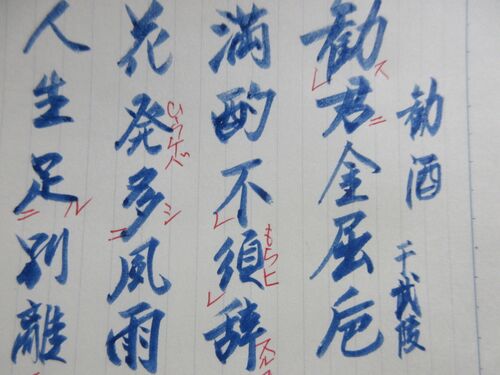 勧酒 于武陵
勧ス レ君ニ金屈卮
満酌不レ須もちヒレ辞
花発ひらケバ多シ二風雨
人生足ル二別離